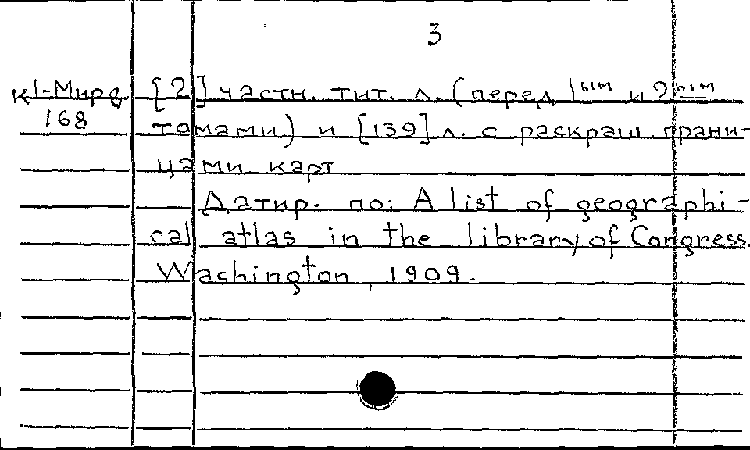 3
К1-Мира [2] частн. тит. л. (перед 1ым и 2ым
168 томами) и [139] л. с раскраш. грани-
цами карт
Датир. по: A list of geographi-
cal atlas in the library of Congress.
Washington, 1909.